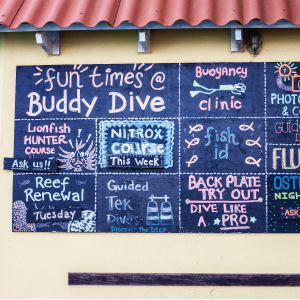 fun times @
Buddy Dive
Buoyancy
clinic
PHOTO
Lionfish
HUNTER
COURSE
Ask us!!
NITROX
course
This Week
fish
id
Guid
FLU
Reef
Renewal
Tuesday
Guided
Tek
Dives
Discover the Deep
BACK PLATE
TRY OUT
DIVE LIKE
A PRO
OST
NIGH
ASK